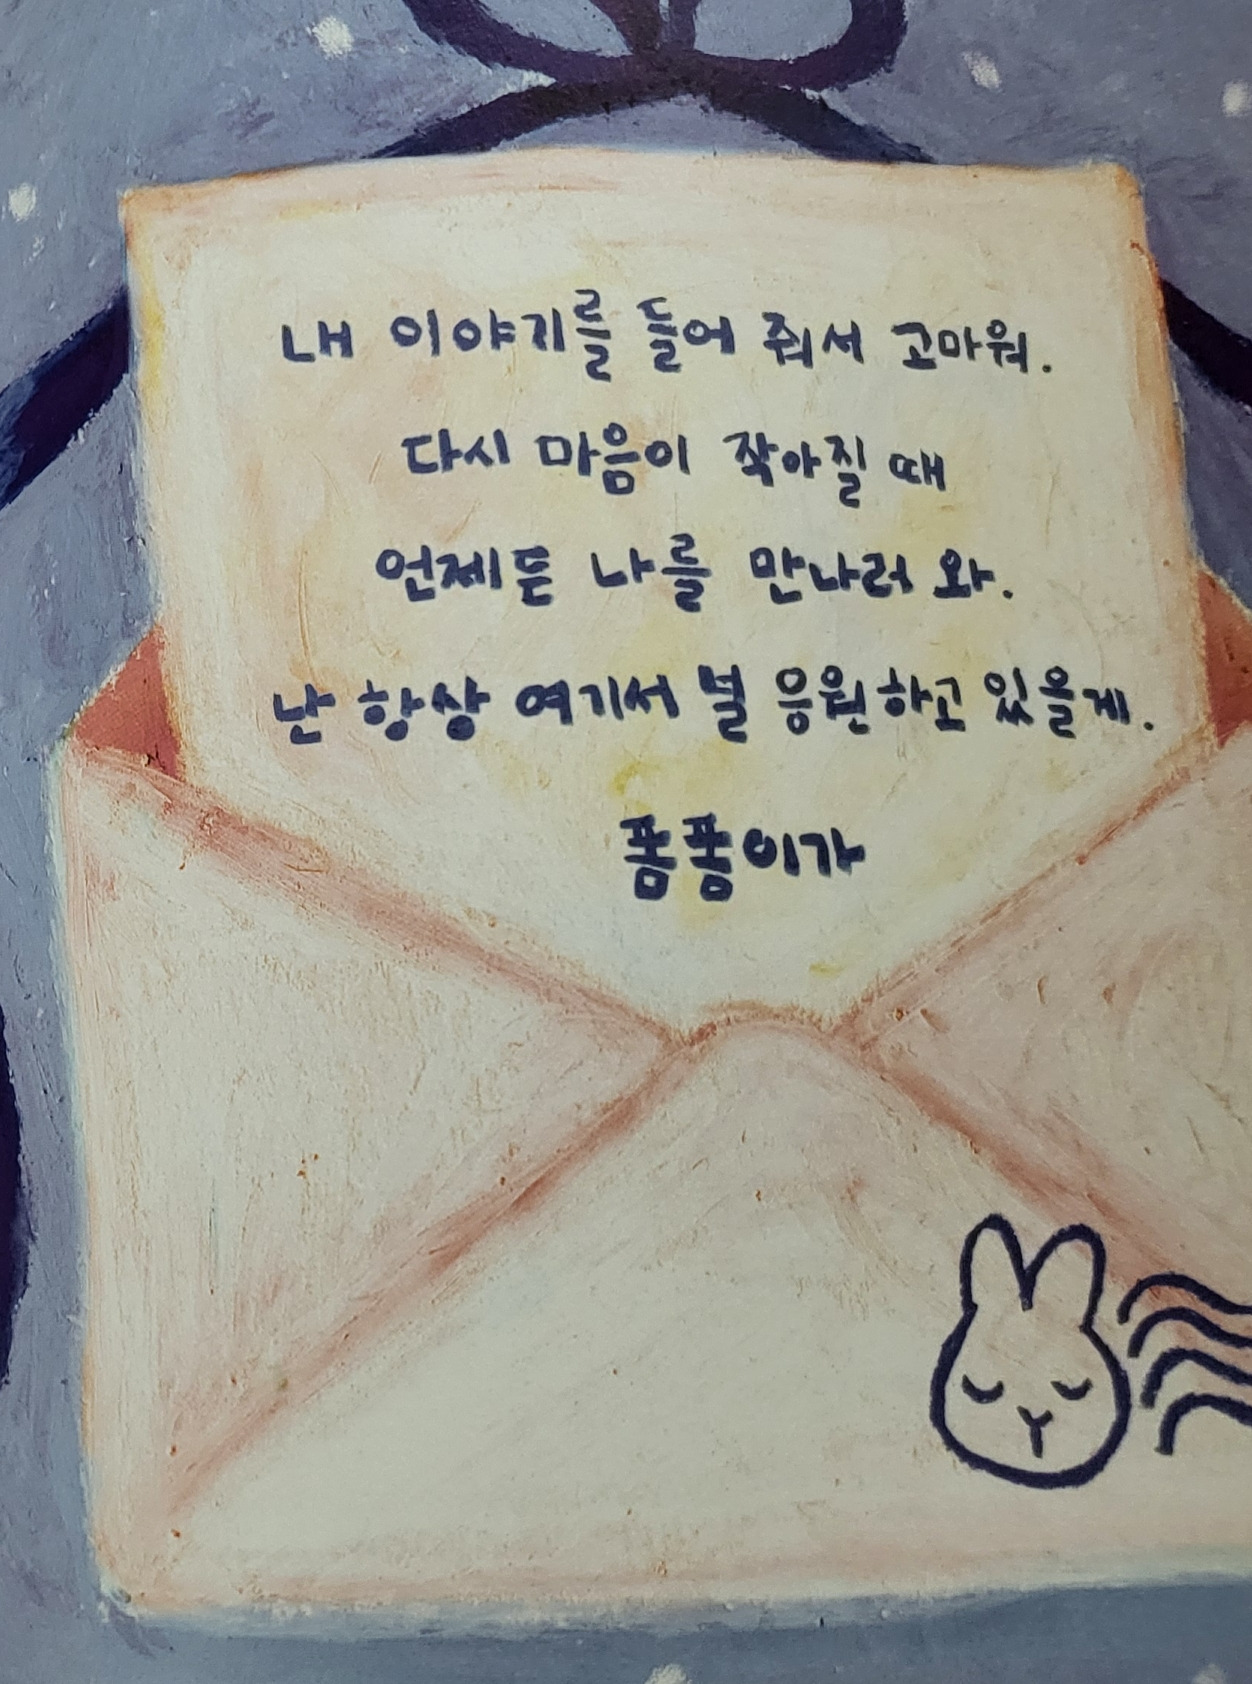 내 이야기를 들어 줘서 고마워.
다시 마음이 작아질 때
언제든 나를 만나러 와.
난 항상 여기서 널 응원하고 있을게.
퐁퐁이가